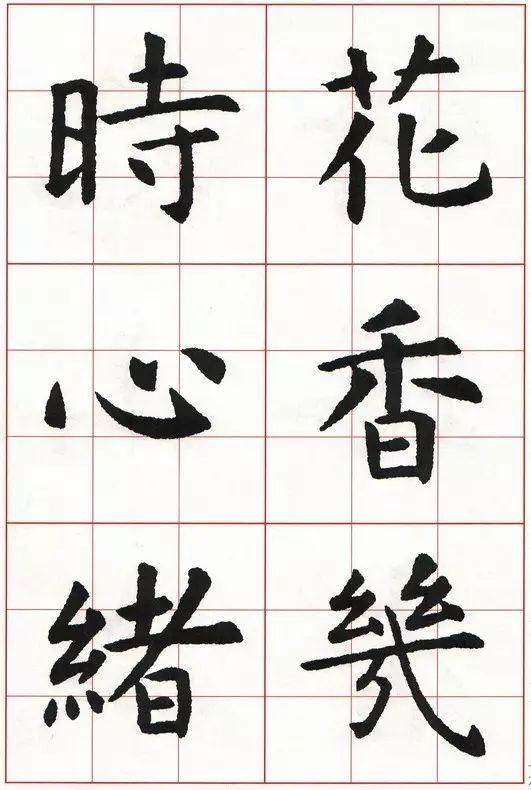 花香幾
時心緒